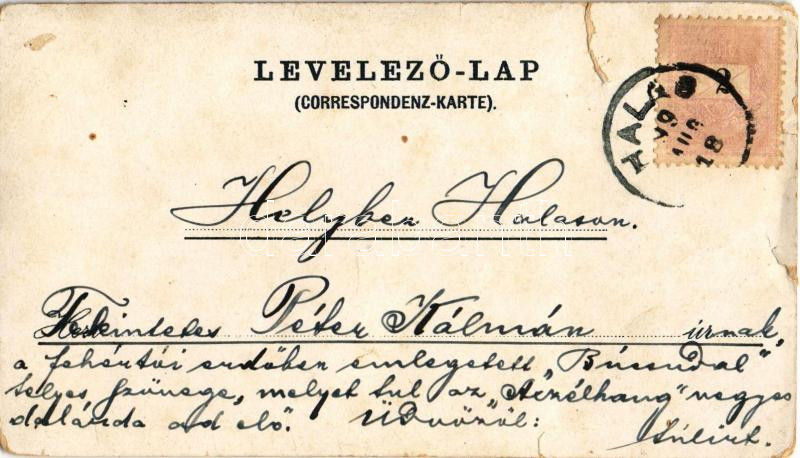 LEVELEZŐ-LAP
(CORRESPONDENZ-KARTE).
HALAS
99
AUG
18
2
Helyben Halason.
Tekintetes Péter Kálmán úrnak,
a fehértói erdőben emlegetett „Búcsúdal"
teljes szövege, melyet túl az „Aczélhang" vegyes
dalárda ad elő. Üdvözöl:
túlírt.